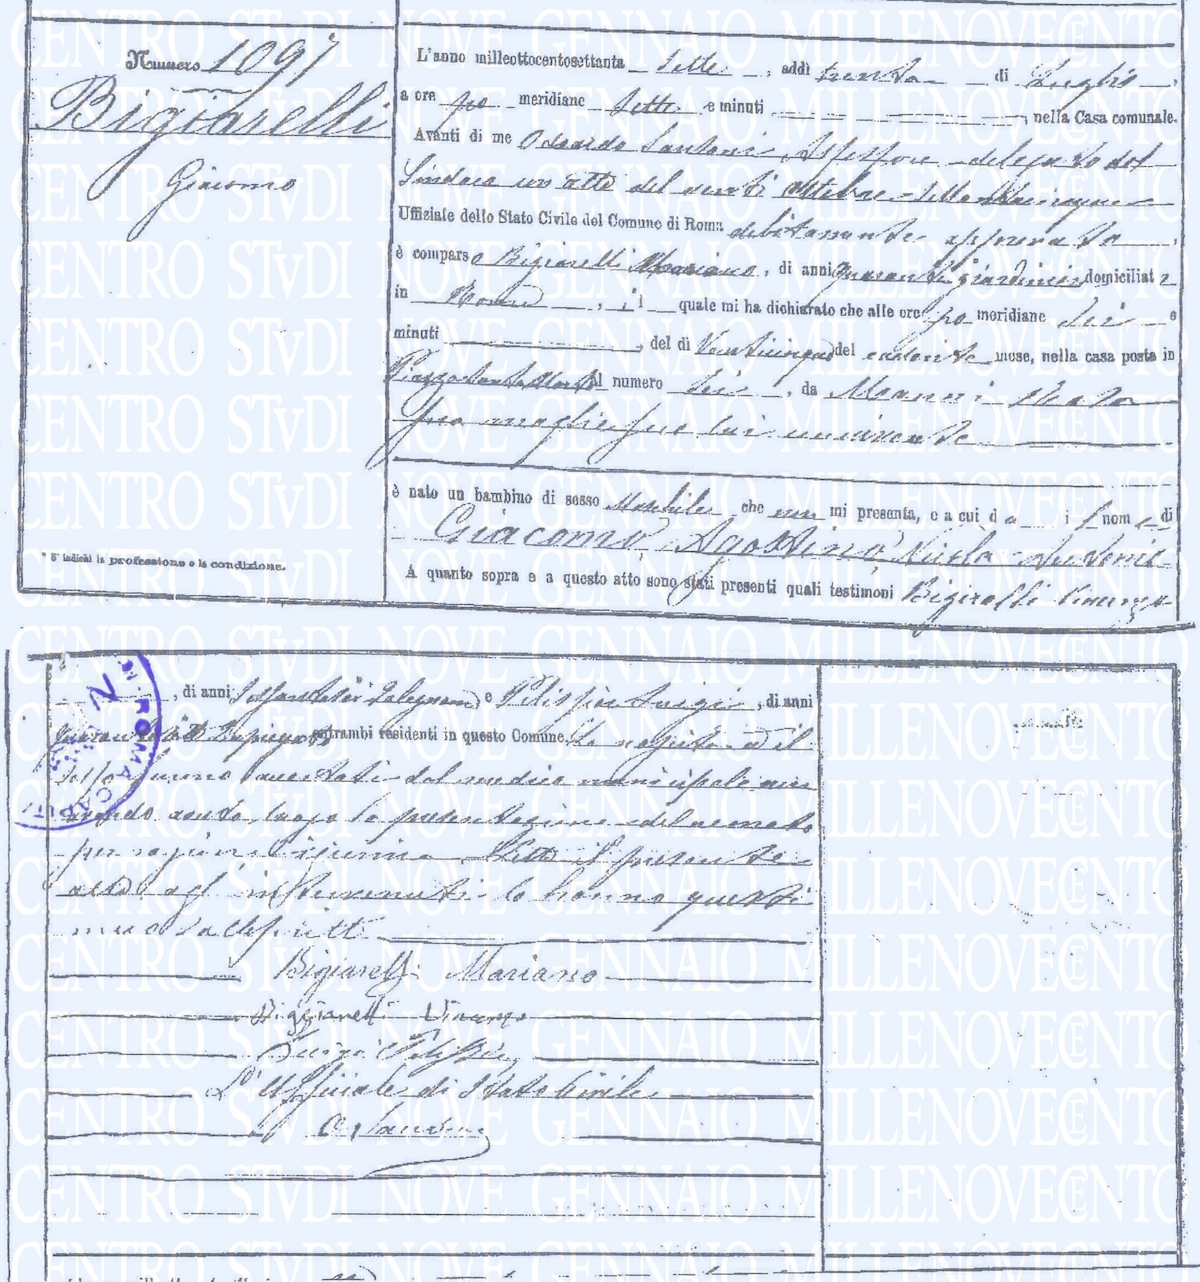 Numero 1097
Bigiarelli
Giacomo
* Si indichi la professione o la condizione.
L'anno millottocentosettanta sette, addì trenta di Luglio,
a ore po meridiane sette e minuti , nella Casa comunale.
Avanti di me Odoardo Santoni Assessore delegato dal
Sindaco con atto del venti ottobre settantacinque
Uffiziale dello Stato Civile del Comune di Roma debitamente approvato
è comparso Bigiarelli Mariano, di anni quaranta, giardiniere domiciliato
in Roma, il quale mi ha dichiarato che alle ore po meridiane sei e
minuti , del dì venticinque del cadente mese, nella casa posta in
Piazza Santa Marta al numero sei, da Nanni
sua moglie seco lui convivente
è nato un bambino di sesso Maschile che non mi presenta, e a cui dà i nomi di
Giacomo, Agostino, Nicola,
A quanto sopra e a questo atto sono stati presenti quali testimoni Bigiarelli Vincenzo
, di anni Falegname e Filippini Luigi, di anni
entrambi residenti in questo Comune. La nascita ed il
sesso furono accertati dal medico municipale non
avendo avuto luogo la presentazione del neonato
per ragioni d'igiene. Letto il presente
atto agl'intervenuti lo hanno questi
meco sottoscritto
Bigiarelli Mariano
Biggiarelli Vincenzo
Luigi Filippini
L'Uffiziale di Stato Civile
O. Santoni
ROMA
CENTRO STVDI NOVE GENNAIO MILLENOVECENTO